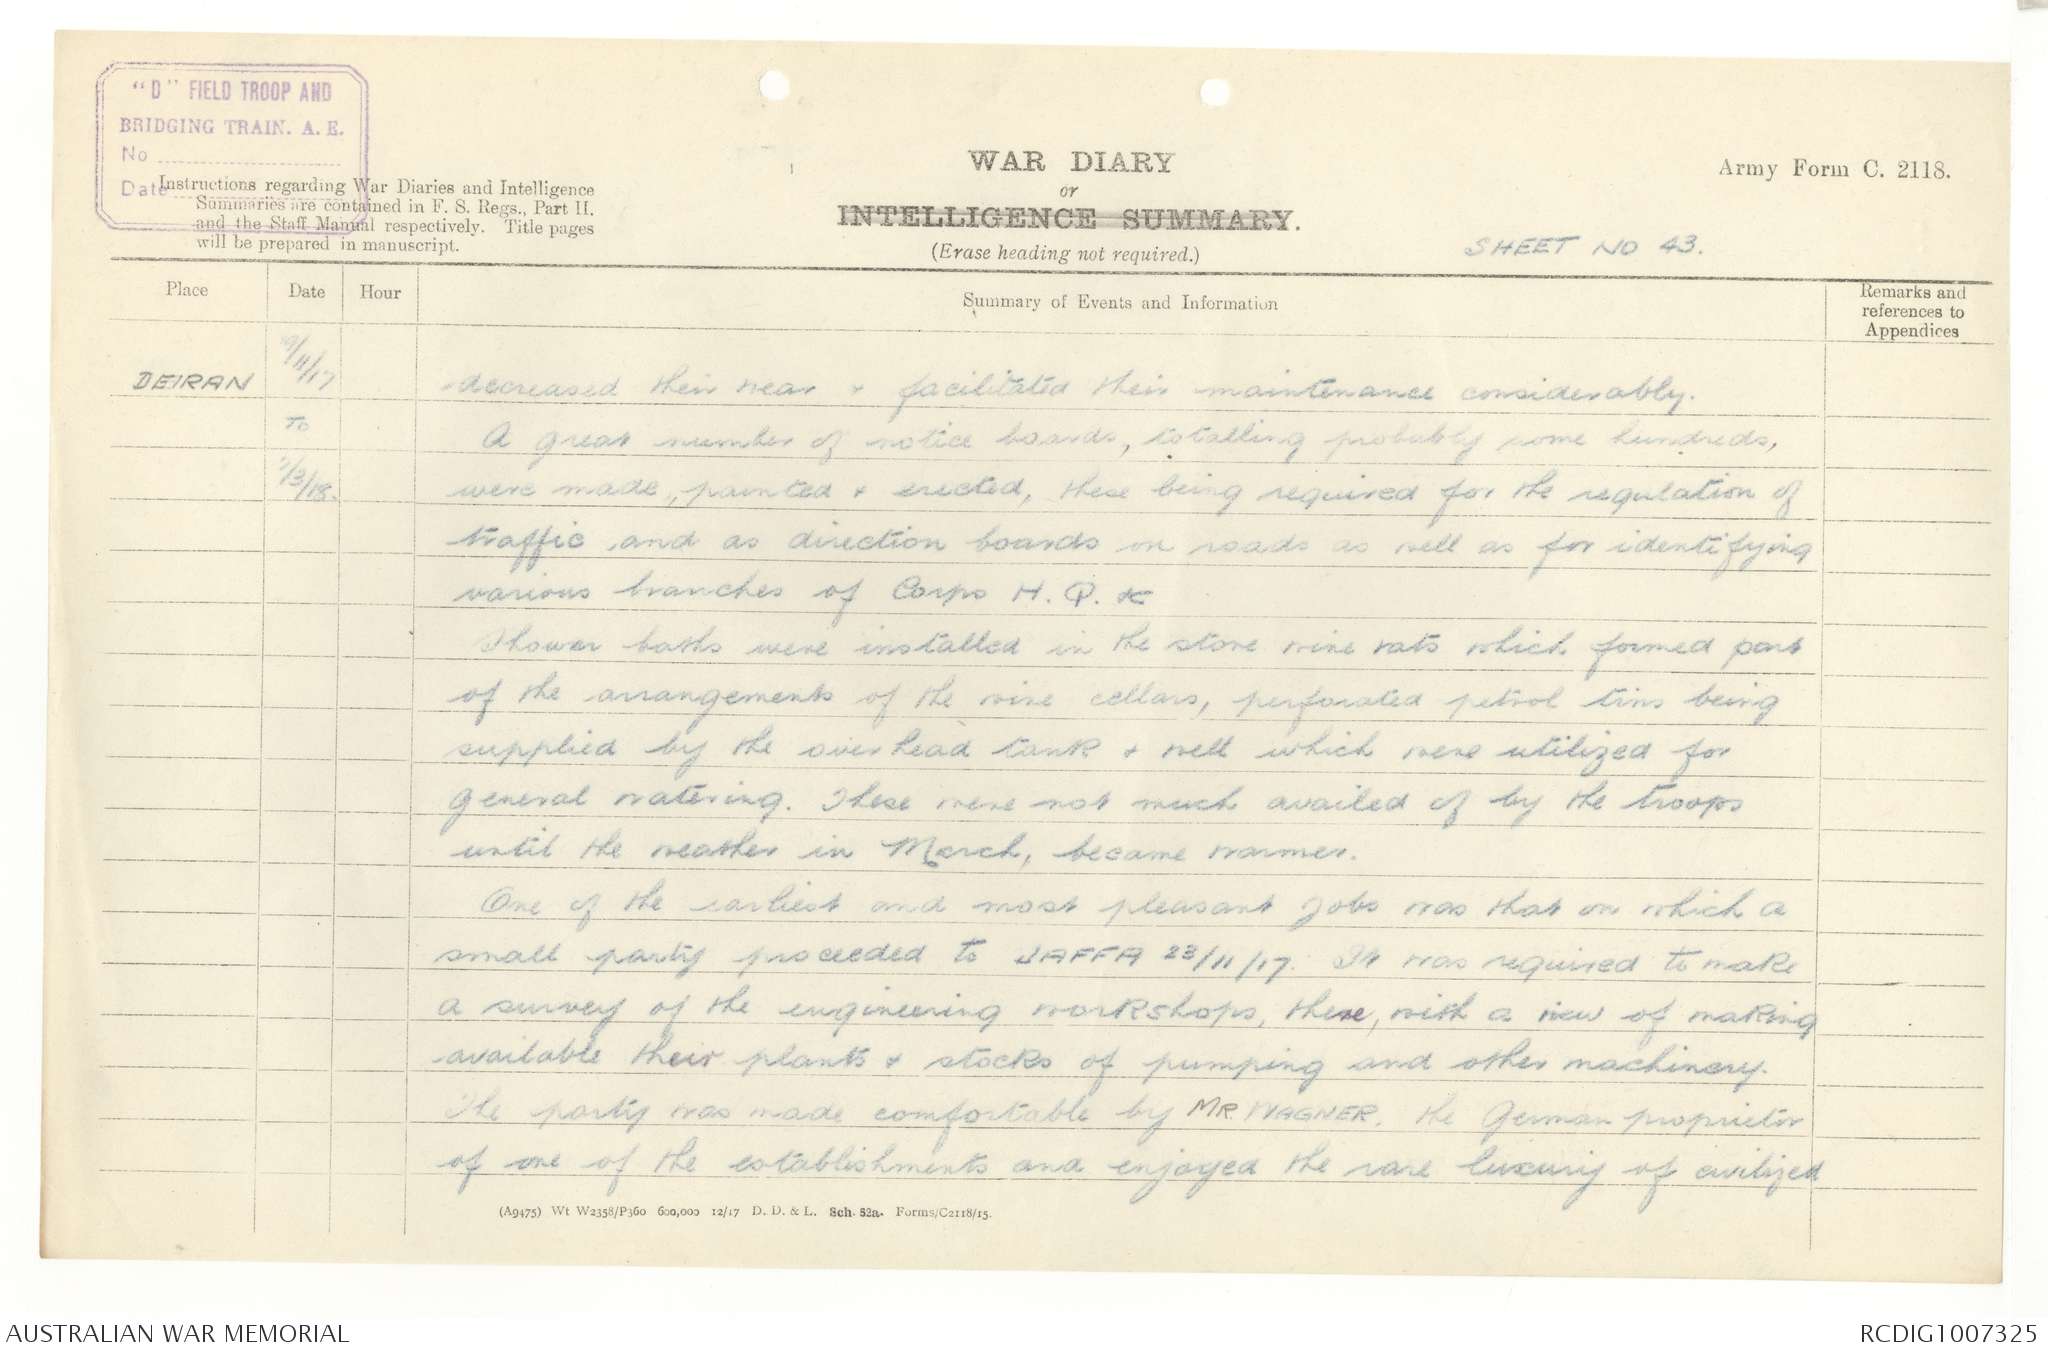 "D" FIELD TROOP AND
BRIDGING TRAIN. A. E.
No
Date
Instructions regarding War Diaries and Intelligence
Summaries are contained in F. S. Regs., Part II.
and the Staff Manual respectively. Title pages
will be prepared in manuscript.
WAR DIARY
or
INTELLIGENCE SUMMARY.
(Erase heading not required.)
Army Form C. 2118.
SHEET NO 43.
Place
Date
Hour
Summary of Events and Information
Remarks and
references to
Appendices
DEIRAN
/11/17
To
/3/18.
decreased their wear & facilitated their maintenance considerably.
A great number of notice boards, totalling probably some hundreds,
were made, painted & erected, these being required for the regulation of
traffic and as direction boards on roads as well as for identifying
various branches of Corps H. Q. &c
Shower baths were installed in the stone wine vats which formed part
of the arrangements of the wine cellars, perforated petrol tins being
supplied by the overhead tank & well which were utilized for
general watering. These were not much availed of by the troops
until the weather in March, became warmer.
One of the earliest and most pleasant jobs was that on which a
small party proceeded to JAFFA 23/11/17. It was required to make
a survey of the engineering workshops, there, with a view of making
available their plants & stocks of pumping and other machinery.
The party was made comfortable by MR WAGNER. the German proprietor
of one of the establishments and enjoyed the rare luxury of civilized
(A9475) Wt W2358/P360 600,000 12/17 D. D. & L. Sch. 52a. Forms/C2118/15.
AUSTRALIAN WAR MEMORIAL
RCDIG1007325